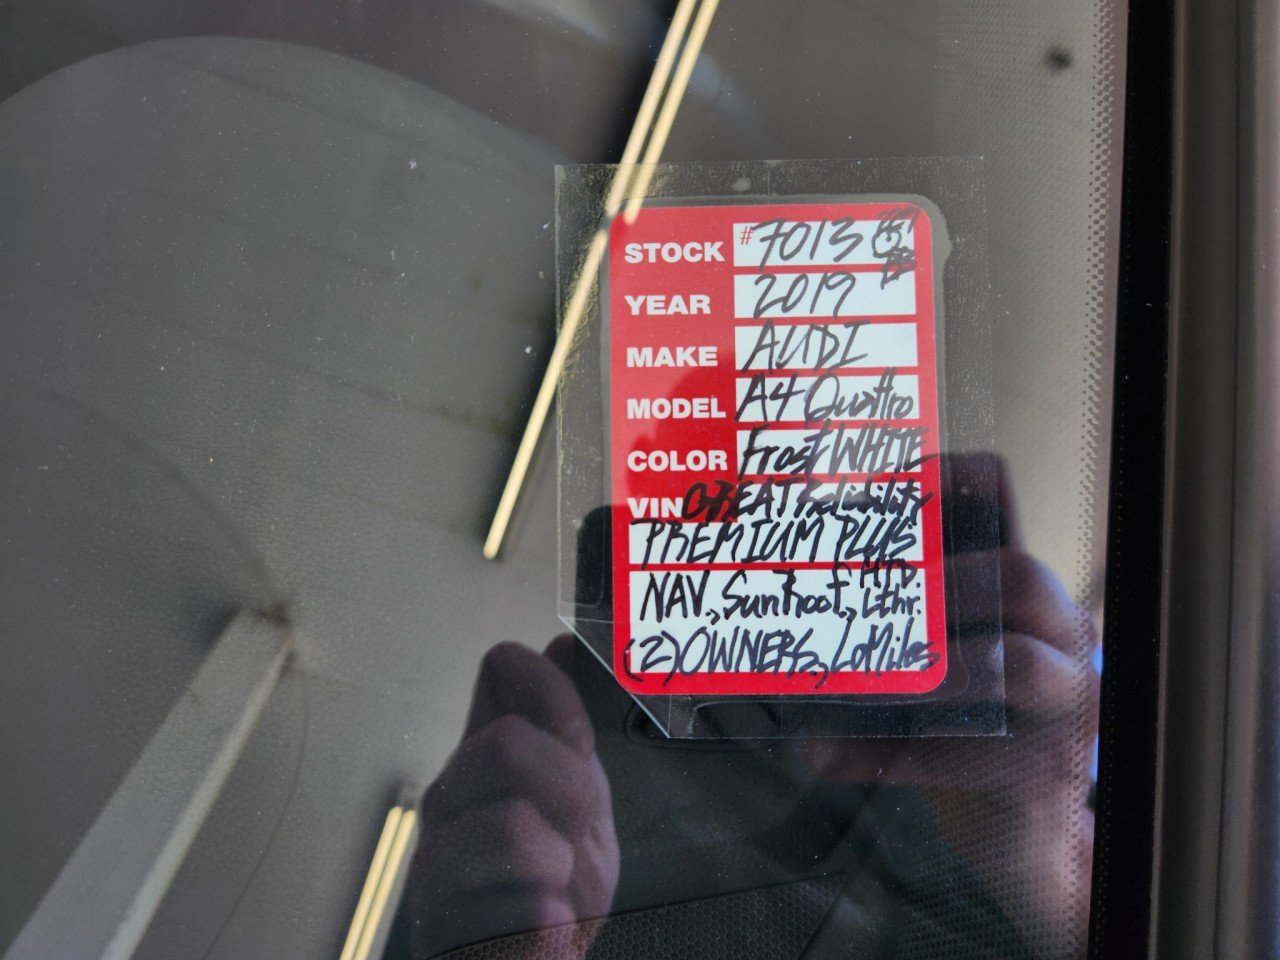 STOCK #7013
YEAR 2019
MAKE AUDI
MODEL A4 Quattro
COLOR Frost WHITE
VIN GREAT Reliability
PREMIUM PLUS
NAV., SunRoof., HTD. Lthr.
(2) OWNERS., LoMiles